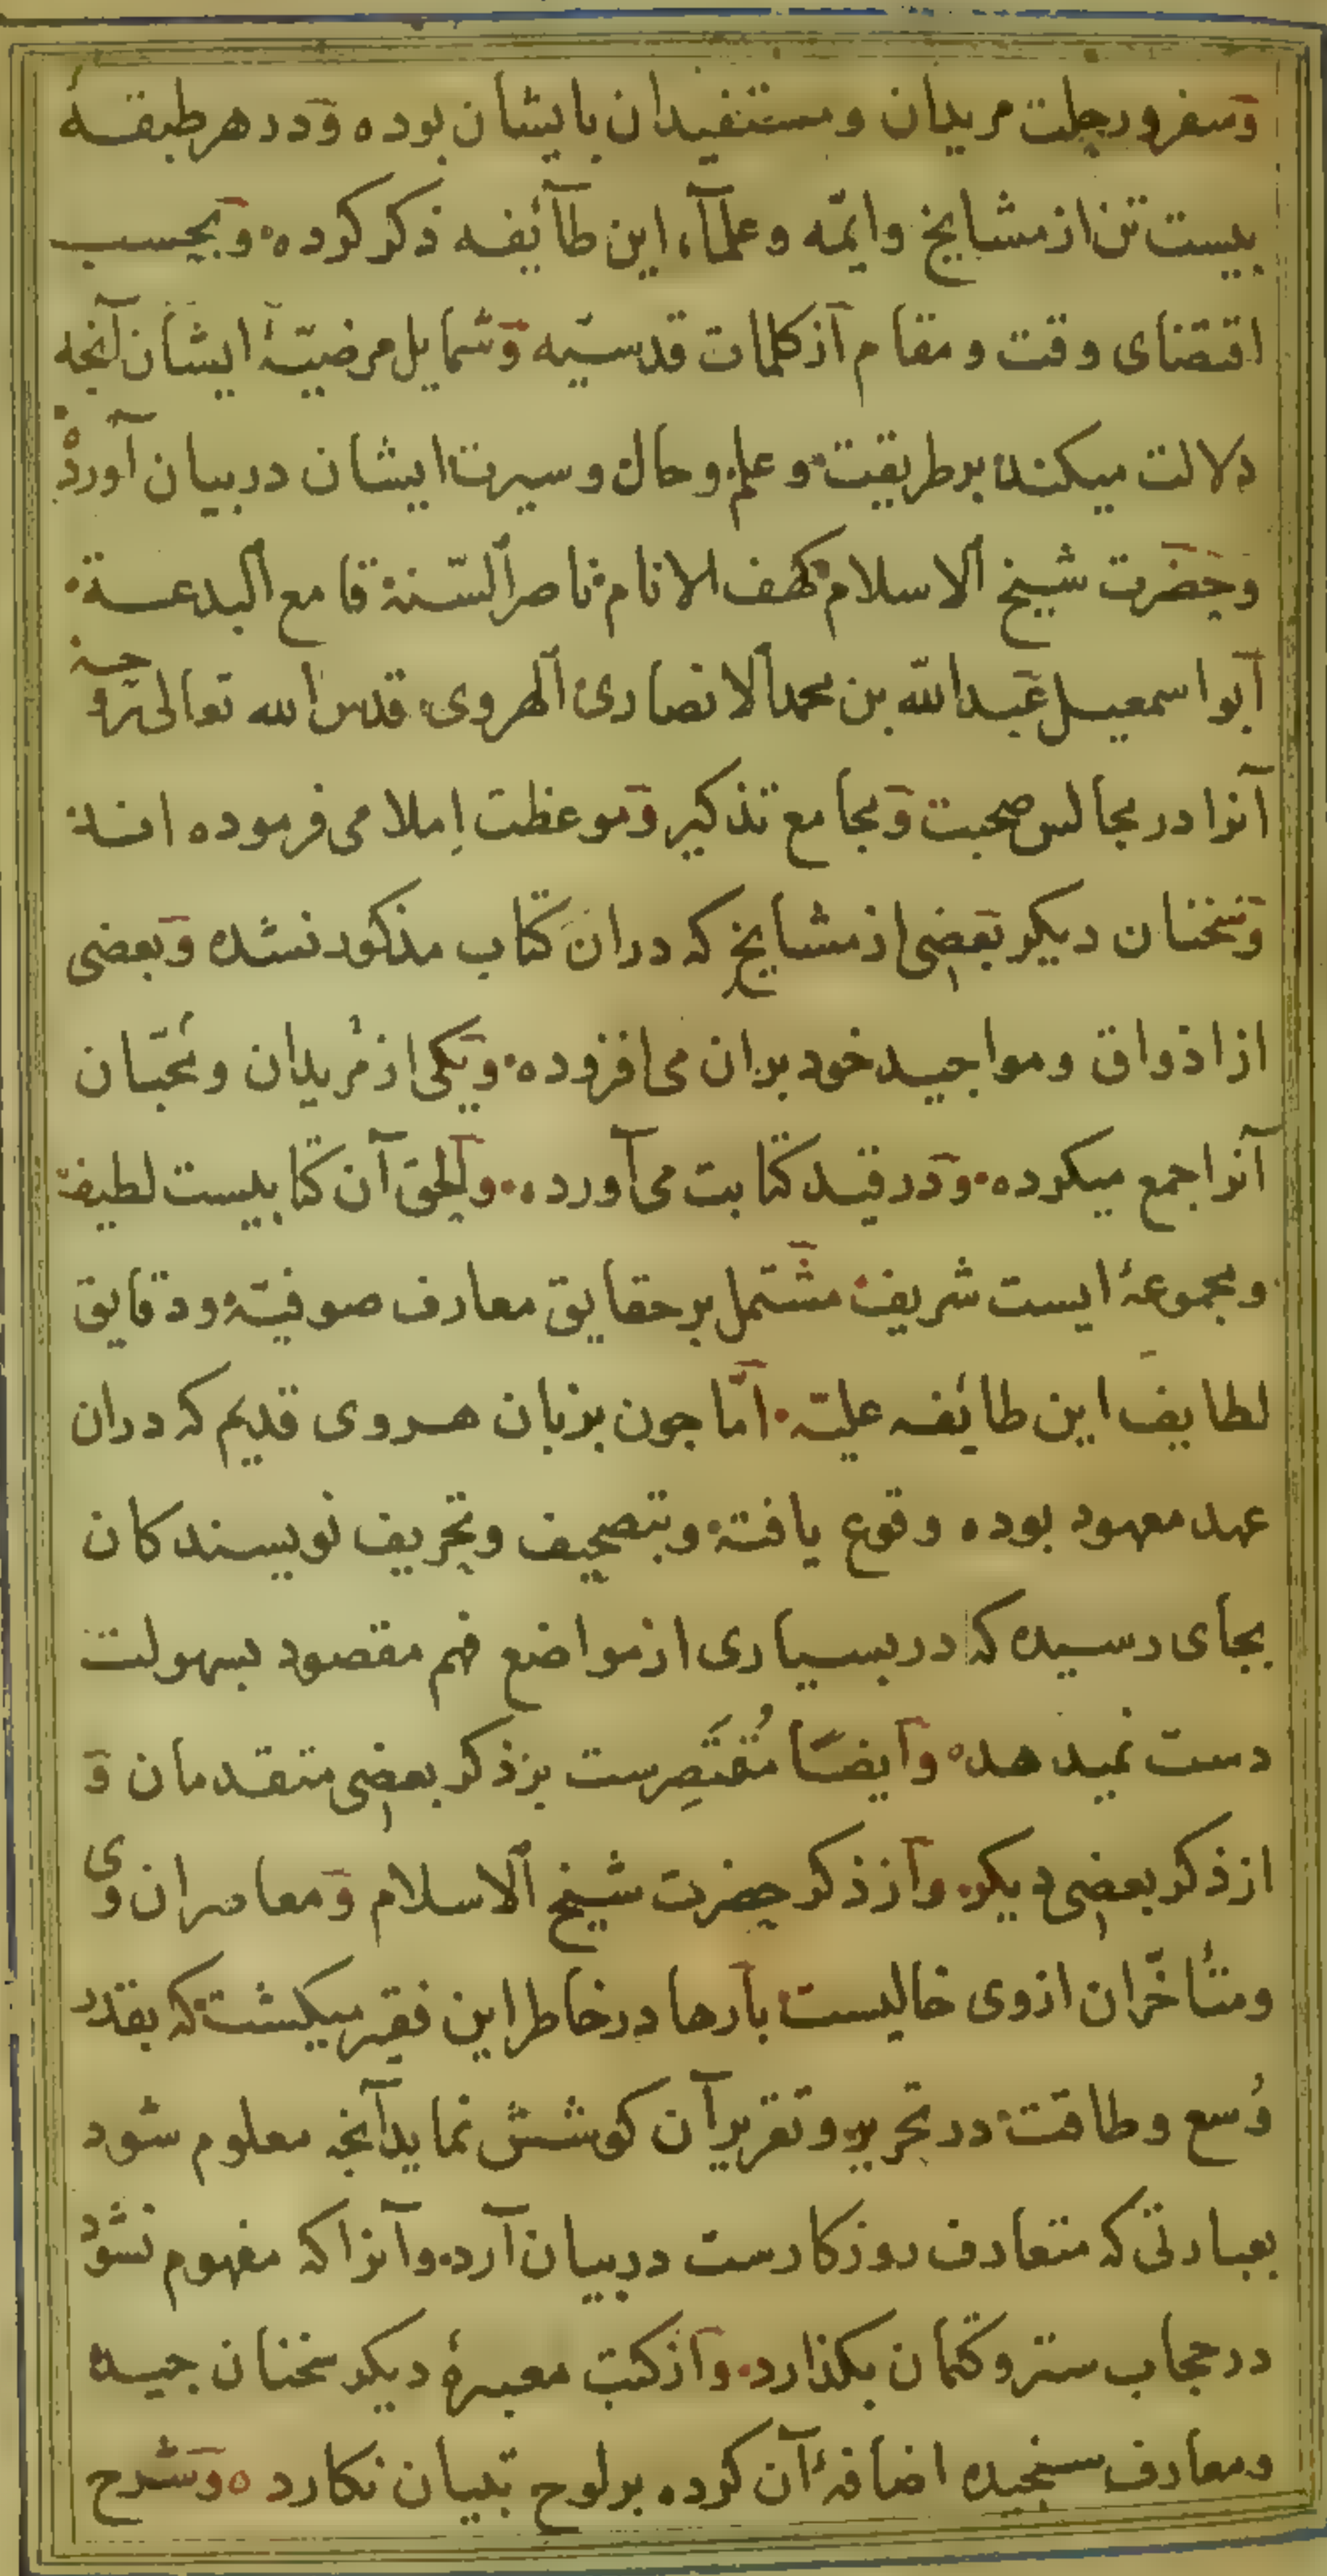 وسفر ورحلت مریدان ومستفیدان بایشان بوده ودر هر طبقهٔ
بیست تن از مشایخ وایمّه وعلمآء این طآئفه ذکر کرده وبحسب
اقتضای وقت ومقام از کلمات قدسیّه وشمایل مرضیّهٔ ایشان آنجه
دلالت میکند بر طریقت وعلم وحال وسیرت ایشان در بیان آورده
وحضرت شیخ الاسلام کهف الانام ناصر السّنة قامع البدعة
ابو اسمعیل عبدالله بن محمد الانصاری الهروی قدس الله تعالی روحه
آنرا در مجالس صحبت ومجامع تذکیر وموعظت إملا می فرموده است
وسخنان دیکر بعضی از مشایخ که دران کتاب مذکور نشده وبعضی
از اذواق ومواجید خود بران می افزوده ویکی از مُریدان ومُحبّان
آنرا جمع میکرده ودر قید کتابت می آورده والحق آن کتابیست لطیف
ومجموعهٔ ایست شریف مشتمل بر حقایق معارف صوفیّه ودقایق
لطایف این طائفه علیّه امّا جون بزبان هروی قدیم که دران
عهد معهود بوده وقوع یافته وبتصحیف وتحریف نویسندکان
بجای رسیده که در بسیاری از مواضع فهم مقصود بسهولت
دست نمیدهد وایضًا مُقتَصِرست بر ذکر بعضی متقدمان و
از ذکر بعضی دیکر واز ذکر حضرت شیخ الاسلام ومعاصران وی
ومتأخّران از وی خالیست بارها در خاطر این فقیر میکشت که بقدر
وُسع وطاقت در تحریر وتقریر آن کوشش نماید آنجه معلوم شود
بعبارتی که متعارف روزکارست در بیان آرد وآنرا که مفهوم نشود
در حجاب ستر وکتمان بکذارد واز کتب معبرهٔ دیکر سخنان جیده
ومعارف سنجیده اضافهٔ آن کرده بر لوح تبیان نکارد وشرح